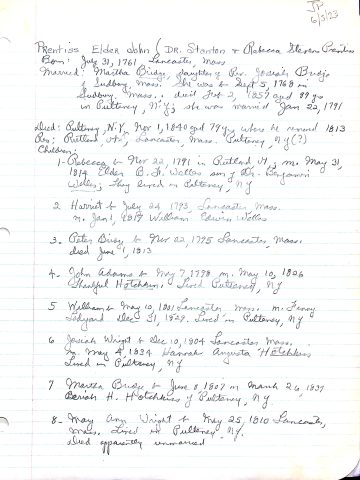 JP
6/5/23
Prentiss Elder John ( Dr. Stanton & Rebecca Stevens Prentiss
Born: July 31, 1761 Lancaster, Mass
Married: Martha Bridge, daughter of Rev. Josiah Bridge
of Sudbury, Mass. She was b Sept 5, 1768 in
Sudbury Mass. died Feb 2, 1857 aged 89 yrs
in Pulteney, N.Y; she was married Jan 22, 1791
Died: Pulteney, N.Y. Nov 1, 1840 aged 79 yrs, where he removed 1813
Res: Rutland, Vt; Lancaster, Mass. Pulteney, NY(?)
Children:
1- Rebecca b Nov 22, 1791 in Rutland Vt; m. May 31,
1814 Elder B. F. Welles son of Dr. Benjamin
Welles; They lived in Pulteney, NY
2 Harriet b July 24 1793, Lancaster Mass.
m. Jan 1, 1817 William Edwin Welles
3- Peter b Nov 22, 1795 Lancaster, Mass.
died June 1, 1813
4- John Adams b May 7, 1798 m. May 10, 1826
Hotchkin. Lived Pulteney, NY
5 William b May 10, 1801 Lancaster Mass. m. Fanny
Ledyard Dec 31, 1829. Lived in Pulteney, NY
6 Josiah Wright b Dec 10, 1804 Lancaster Mass.
m. May 4, 1834 Hannah Augusta Hotchkins
Lived in Pulteney, NY
7 Martha Bridge b June 8, 1807 m March 26, 1837
Beriah H. Hotchkins of Pulteney, NY
8- Mary Ann Wright b May 25, 1810 Lancaster,
Mass. Lived in Pulteney, NY.
Died apparently unmarried